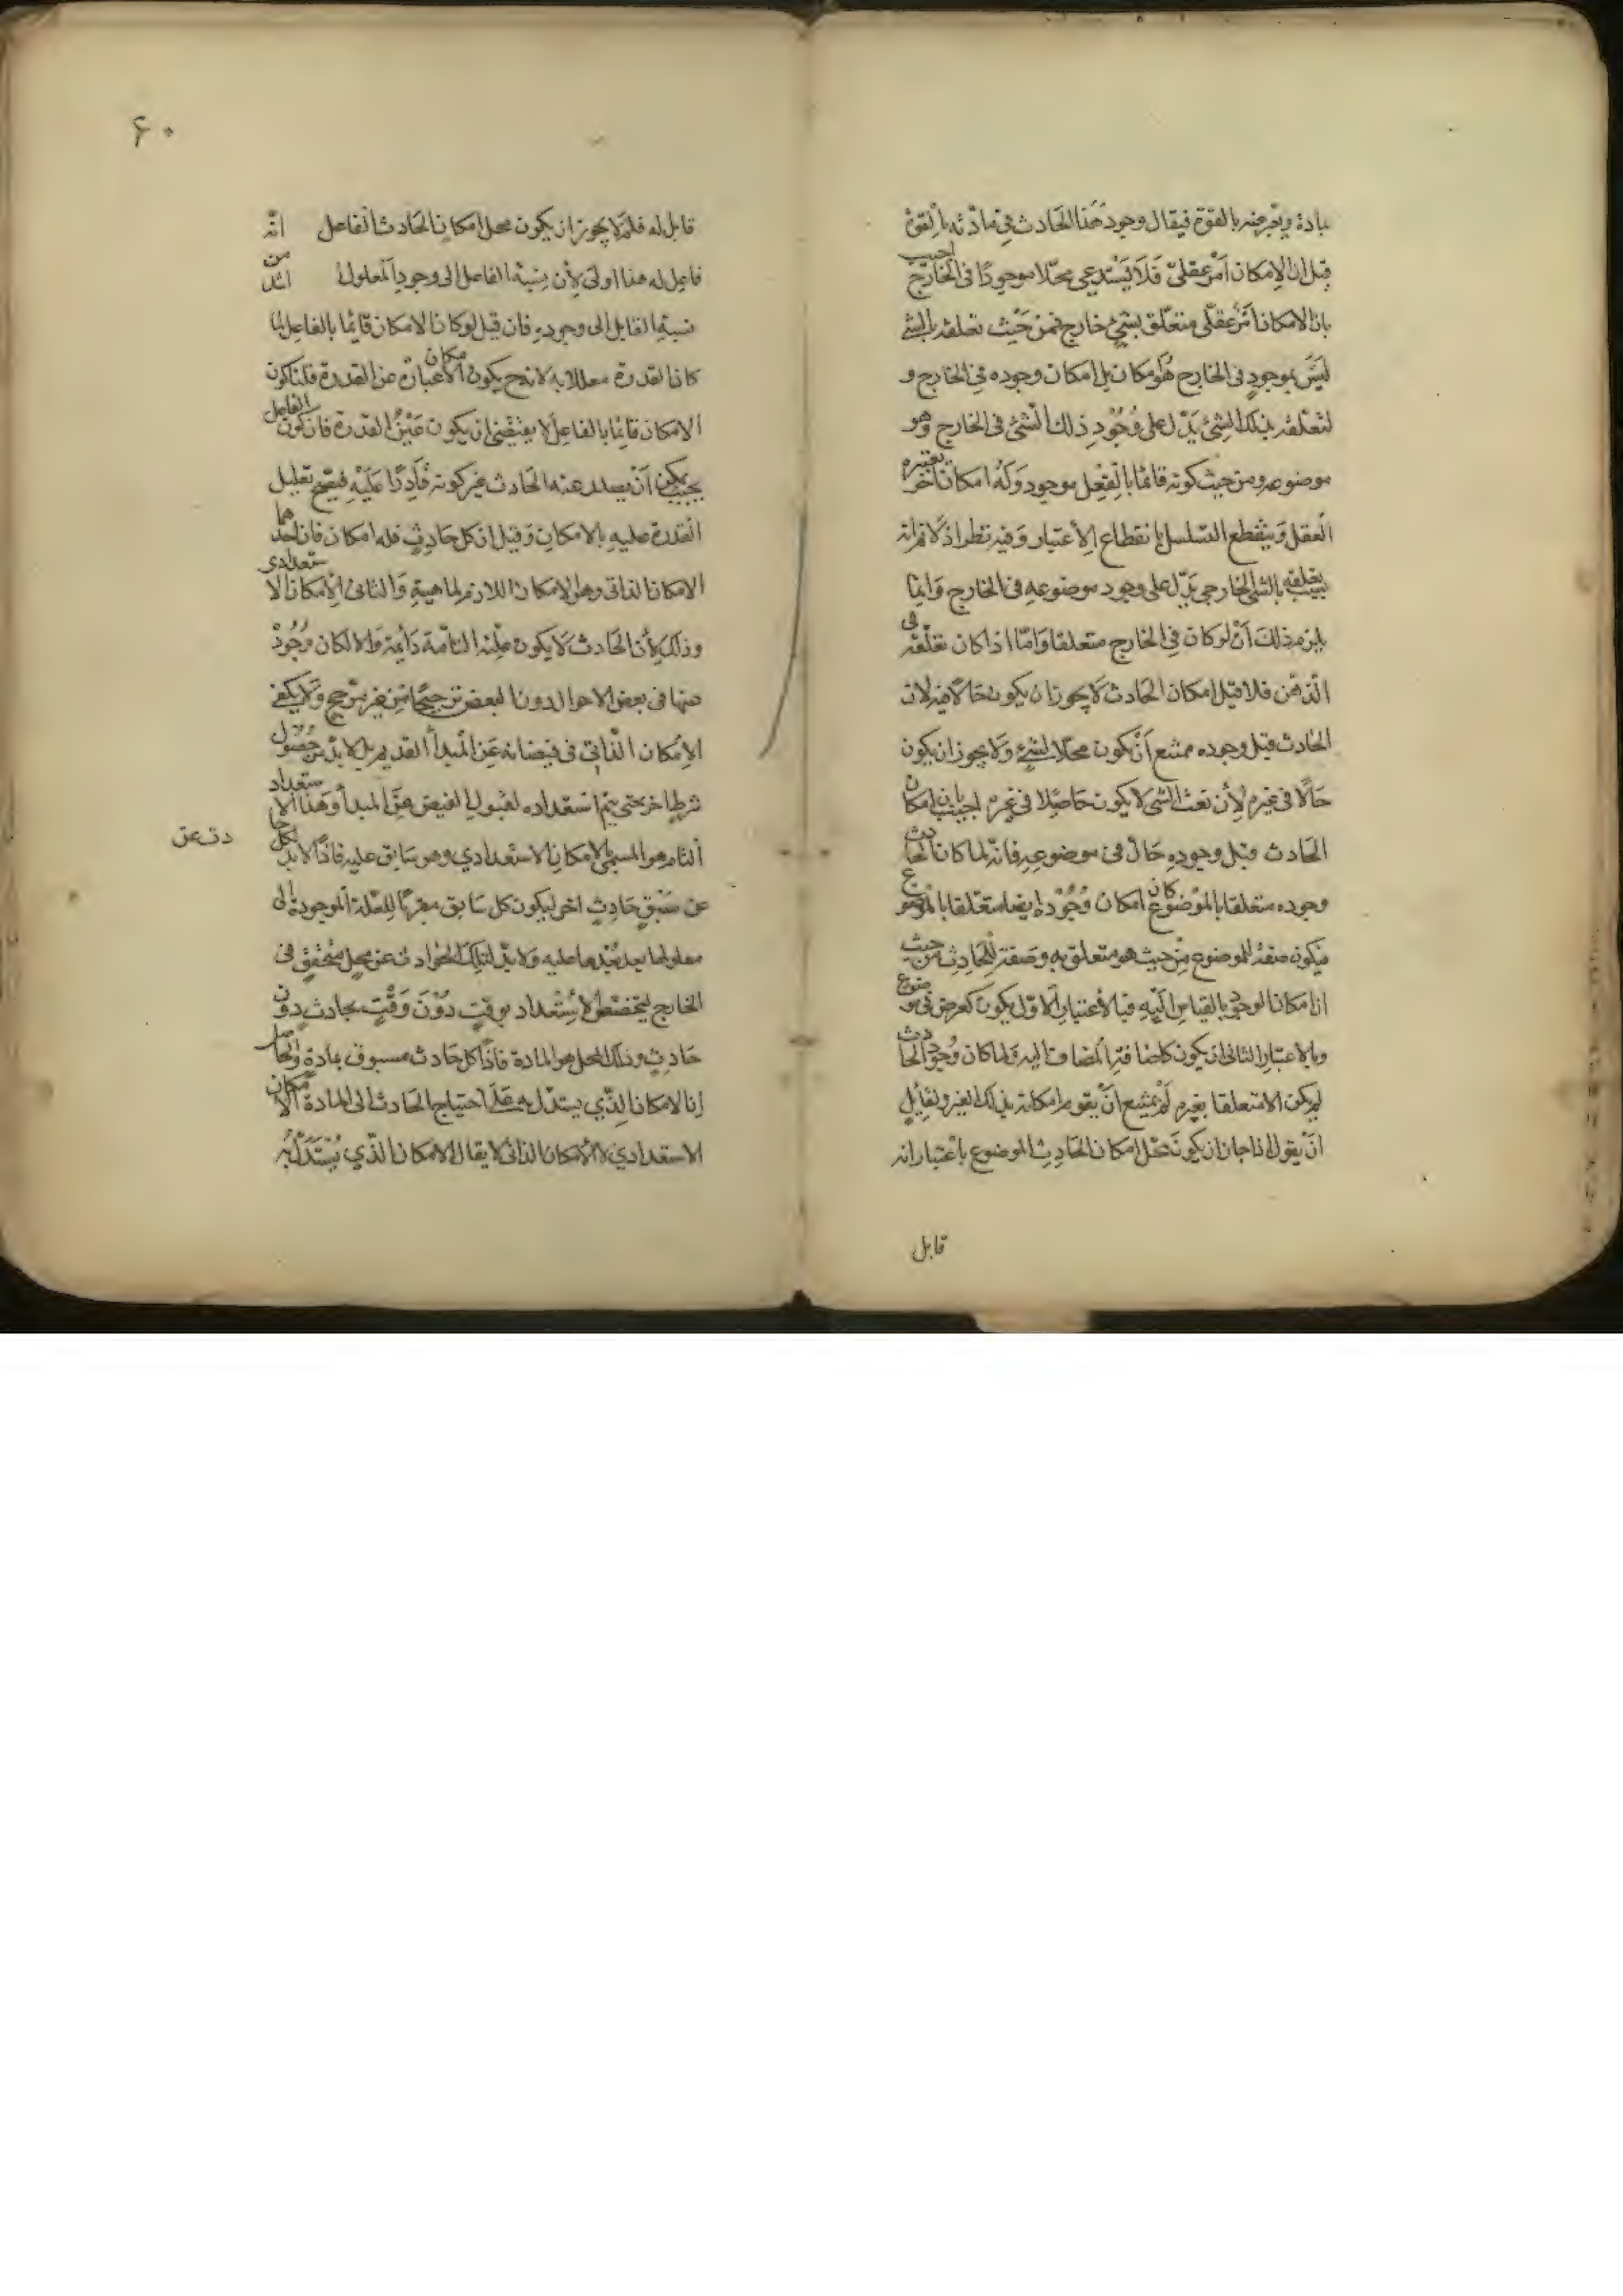 بمادة ويعبر عنه بالقوة فيقال وجود هذا الحادث في مادته بالقوة
قيل ان الإمكان أمر عقلي فلا يستدعي محلا موجودا في الخارج اجيب
بان الامكان أمر عقلي متعلق بشئ خارج فمن حيث تعلقه بالشئ
ليس بموجود في الخارج هو مكان بل امكان وجوده في الخارج و
لتعلقه بذلك الشئ يدل على وجود ذلك الشئ في الخارج وهو
موضوعه ومن حيث كونه قائما بالفعل موجود وله امكان آخر يعتبره
العقل وينقطع التسلسل بانقطاع الأعتبار وفيه نظر اذ لا نم انه
تعلقه بالشئ الخارجي يدل على وجود موضوعه في الخارج وانما
يلزم ذلك أن لو كان في الخارج متعلقا واما اذا كان تعلقه في
الذهن فلا قيل امكان الحادث لا يجوز ان يكون حالا فيه لان
الحادث قبل وجوده ممتنع أن يكون محلا لشئ ولا يجوز ان يكون
حالا في غيره لأن نعت الشئ لا يكون حاصلا في غيره اجيب بان امكان
الحادث قبل وجوده حال في موضوعه فانه لما كان الحادث
وجوده متعلقا بالموضوع كان امكان وجوده ايضا متعلقا بالموضوع
فيكون صفة للموضوع من حيث هو متعلق به وصفة للحادث من حيث
ان امكان الوجود بالقياس اليه فبالأعتبار الاول يكون كعرض في موضوع
وبالاعتبار الثاني يكون كاضافة المضاف اليه ولما كان وجود الحادث
لم يكن الا متعلقا بغيره لم يمتنع أن يقوم امكانه بذلك الغير ولقائل
ان يقول اذا جاز ان يكون محل امكان الحادث الموضوع باعتبار انه
قابل
۶۰
قابل له فلم لا يجوز ان يكون محل امكان الحادث الفاعل انه
فاعل له هذا اولى لأن نسبة الفاعل الى وجود المعلول اشد من
نسبة القابل الى وجوده فان قيل لو كان الامكان قائما بالفاعل لما
كان القدرة معللا به لانه ح يكون الامكان عبارة عن القدرة قلنا كون
الامكان قائما بالفاعل لا يقتضي ان يكون عين القدرة فان كون الفاعل
بحيث يمكن أن يصدر عنه الحادث غير كونه قادرا عليه فيصح تعليل
القدرة عليه بالامكان وقيل ان كل حادث فله امكان فان احدهما
الامكان الذاتي وهو الامكان اللازم لماهية والثاني الامكان الاستعدادي
وذلك لأن الحادث لا يكون علته التامة دائمة والا لكان وجود
عنها في بعض الاحوال دون البعض ترجيحا من غير مرجح ولا يكفي
الإمكان الذاتي في فيضانه عن المبدأ القديم بل لابد من حصول
شرط اخر حتى يتم استعداده لقبول الفيض عن المبدأ وهذا الاستعداد
التام هو المسمى بالامكان الاستعدادي وهو سابق عليه فاذا لا بد لكل حا
دث عن
عن سبق حادث اخر ليكون كل سابق مقربا للعلة الموجودة الى
معلولها بعد بعدها عليه ولا بد لتلك الحوادث عن محل متحقق في
الخارج ليتخصص الاستعداد بوقت دون وقت بحادث دون
حادث وذلك المحل هو المادة فاذا كل حادث مسبوق بمادة والحاصل
ان الامكان الذي يستدل به على احتياج الحادث الى المادة الامكان
الاستعدادي لا الامكان الذاتي لا يقال الامكان الذي يستدل به